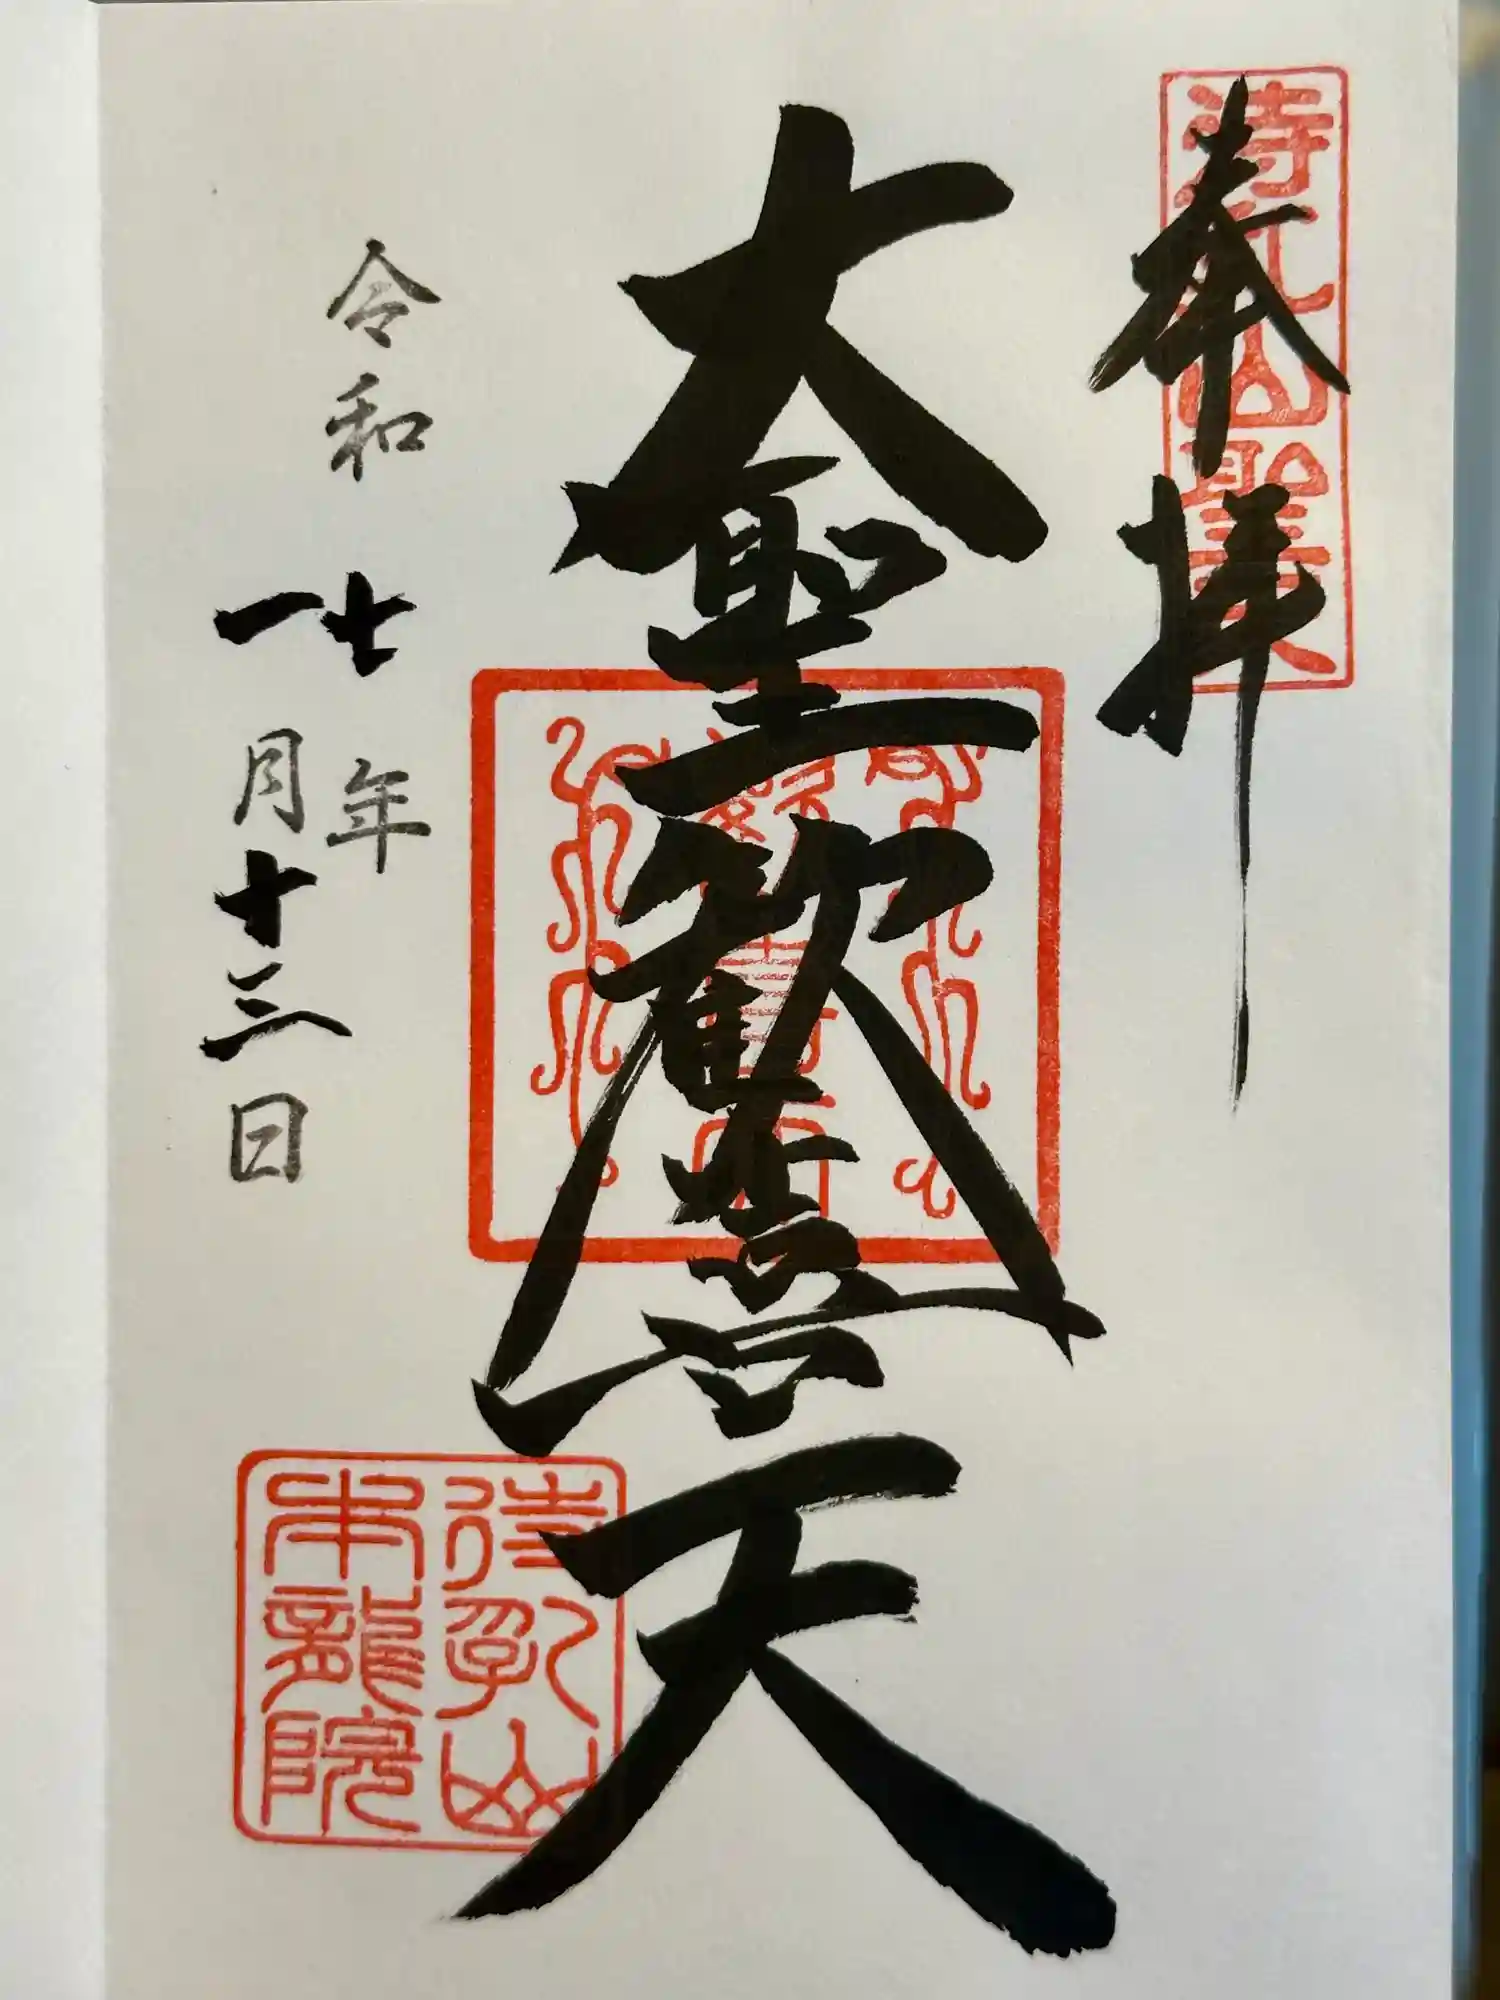 待乳山聖天
奉拝
大聖歓喜天
令和七年
一月十三日
待乳山
本龍院